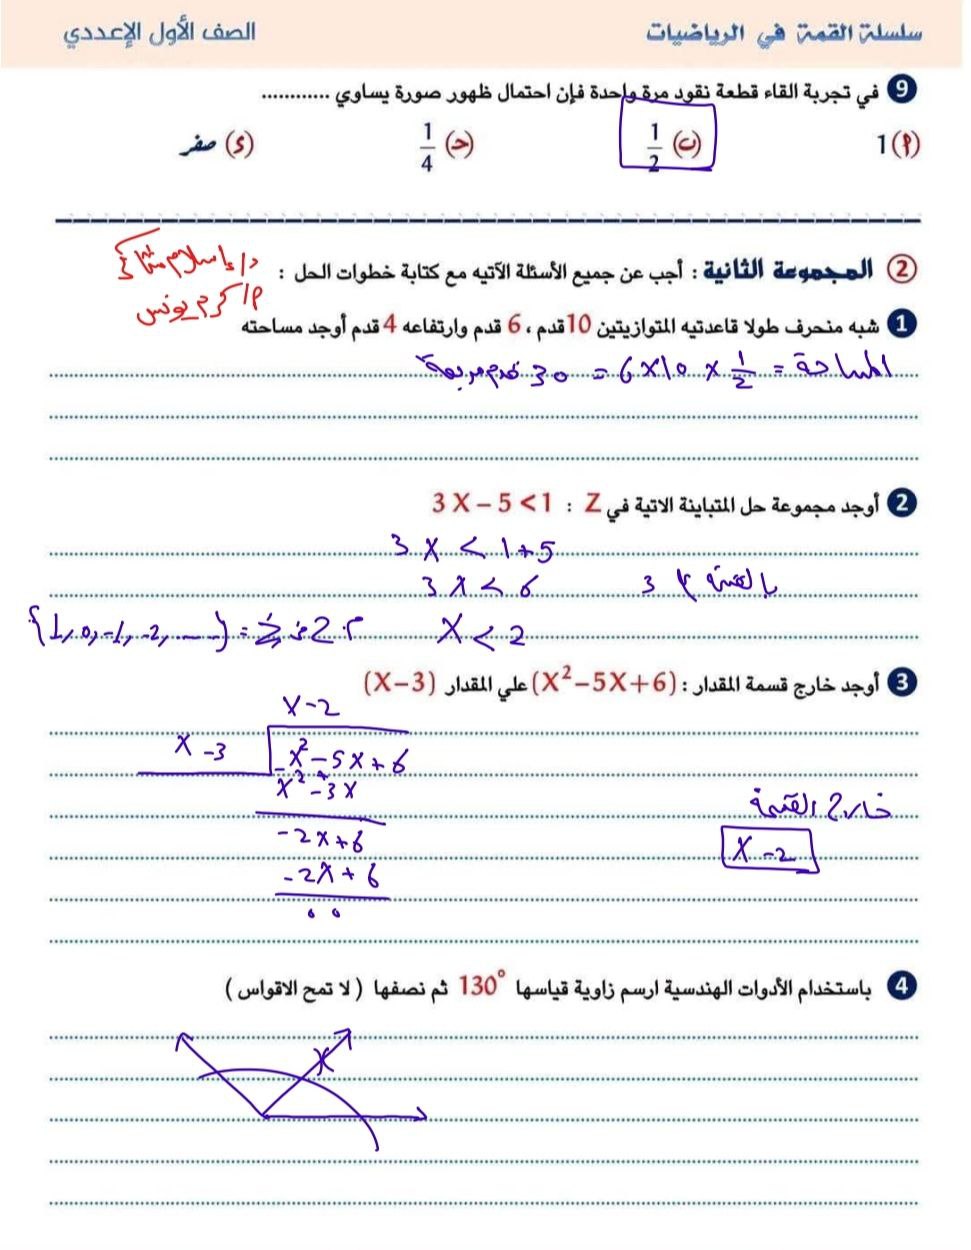 سلسلة القمة في الرياضيات الصف الأول الإعددي
9 في تجربة القاء قطعة نقود مرة واحدة فإن احتمال ظهور صورة يساوي ............
(P) 1 (ب) 1/2 (ح) 1/4 (s) صفر
2 المجموعة الثانية : أجب عن جميع الأسئلة الآتيه مع كتابة خطوات الحل :
د/ إسلام
م/ كرم يونس
1 شبه منحرف طولا قاعدتيه المتوازيتين 10 قدم ، 6 قدم وارتفاعه 4 قدم أوجد مساحته
المساحة = 1/2 × 10 × 6 = 30 قدم مربعة
2 أوجد مجموعة حل المتباينة الاتية في Z : 3 X – 5 < 1
3 X < 1 + 5
3 X < 6 بالقسمة 3
X < 2 م.ح في Z = {1, 0, -1, -2, .....}
3 أوجد خارج قسمة المقدار : (X²–5X+6) علي المقدار (X–3)
X - 2
X - 3 X² - 5X + 6
X² - 3X
-2X + 6
-2X + 6
0 0
خارج القسمة
X - 2
4 باستخدام الأدوات الهندسية ارسم زاوية قياسها 130° ثم نصفها ( لا تمح الاقواس )